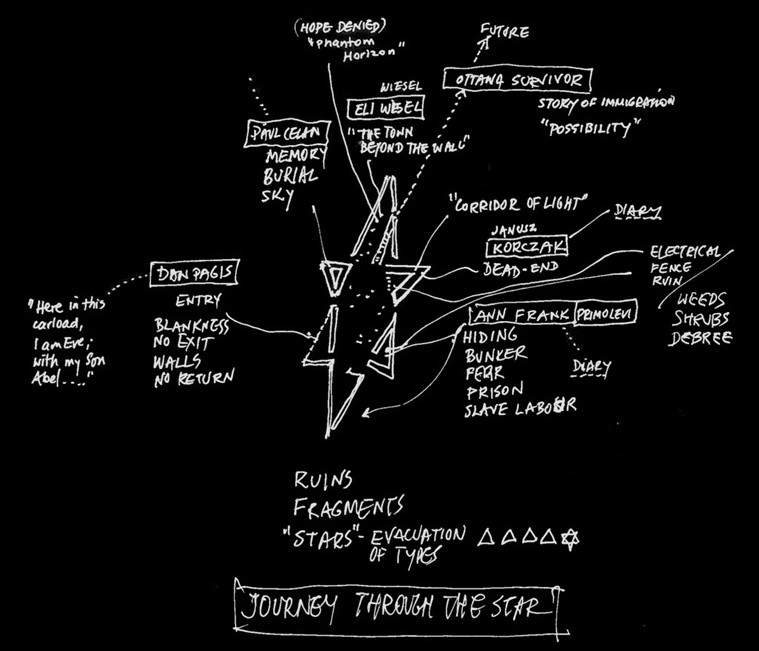 (HOPE DENIED)
"Phantom
Horizon"
FUTURE
WIESEL
ELI WIESEL
"THE TOWN
BEYOND THE WALL"
OTTAWA SURVIVOR
STORY OF IMMIGRATION
"POSSIBILITY"
PAUL CELAN
MEMORY
BURIAL
SKY
"CORRIDOR OF LIGHT"
DIARY
JANUSZ
KORCZAK
DEAD-END
ELECTRICAL
FENCE
RUIN
WEEDS
SHRUBS
DEBREE
DAN PAGIS
ENTRY
BLANKNESS
NO EXIT
WALLS
NO RETURN
"Here in this
carload,
I am Eve,
with my son
Abel...."
ANN FRANK PRIMO LEVI
HIDING
BUNKER
FEAR
PRISON
SLAVE LABOR
DIARY
RUINS
FRAGMENTS
"STARS" - EVACUATION
OF TYPES
JOURNEY THROUGH THE STAR